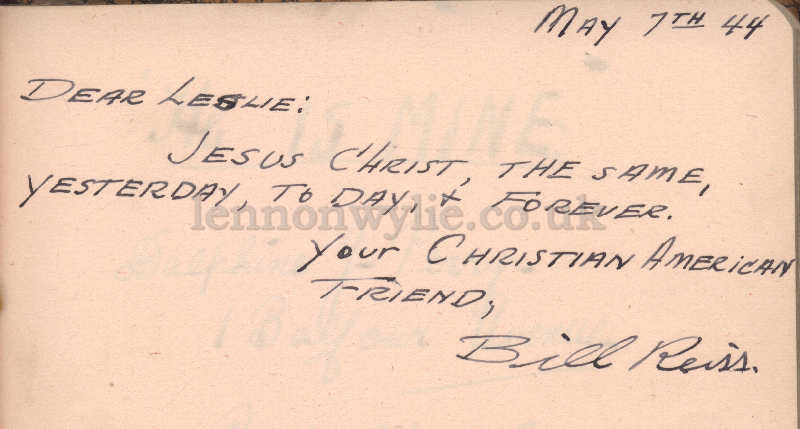 MAY 7TH 44
DEAR LESLIE:
JESUS CHRIST, THE SAME,
YESTERDAY, TO DAY, & FOREVER.
lennonwylie.co.uk
Your CHRISTIAN AMERICAN
FRIEND,
Bill Reiss.
IS MINE